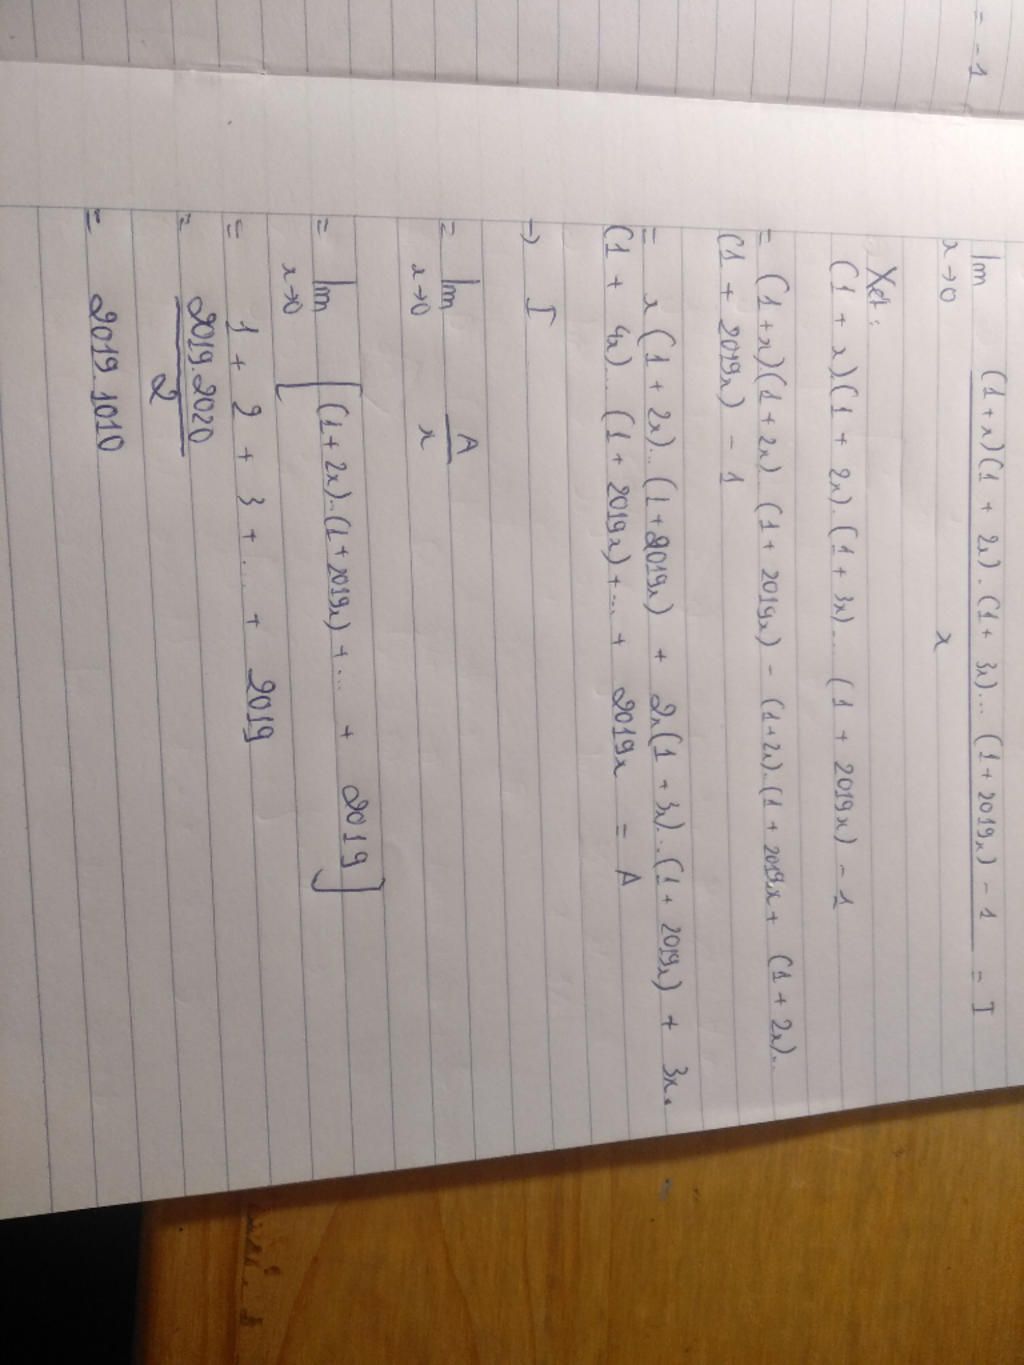 = -1
lim (1+x)(1 + 2x).(1 + 3x)...(1+2019x) - 1 = I
x→0 x
Xét:
(1 + x)(1 + 2x).(1 + 3x)... (1 + 2019x) - 1
= (1+x)(1+2x). (1 + 2019x) - (1+2x)..(1 + 2019x + (1 + 2x)..
(1 + 2019x) - 1
= x(1 + 2x)...(1+2019x) + 2x(1 + 3x)...(1 + 2019x) + 3x.
(1 + 4x)...(1 + 2019x) + ... + 2019x = A
→ I
= lim A
x→0 x
= lim [(1+2x)..(1+2019x) + ... + 2019]
x→0
= 1 + 2 + 3 + ... + 2019
= 2019.2020
2
= 2019.1010